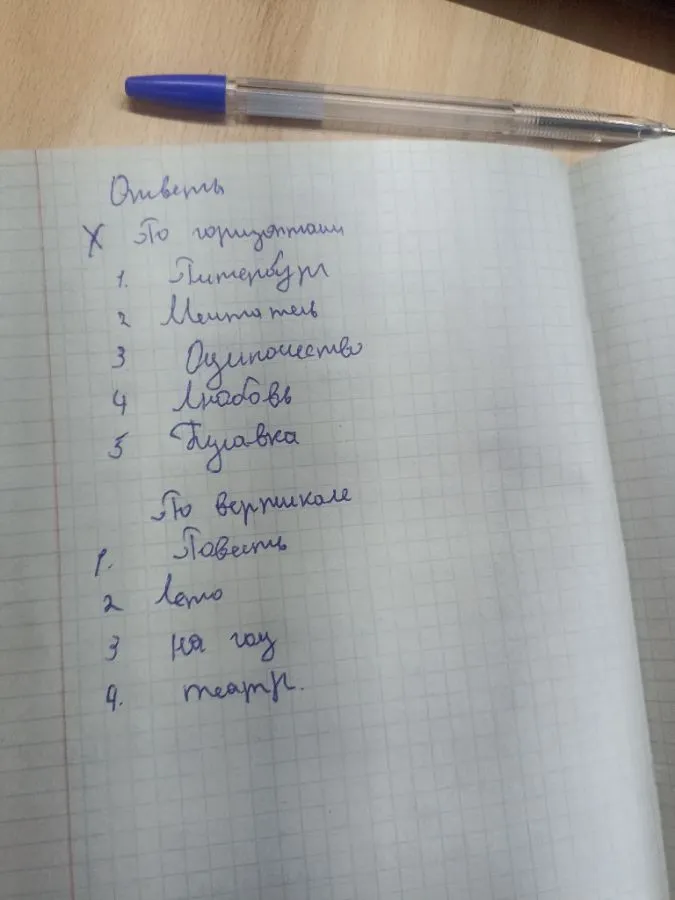 Ответы
X По горизонтали
1. Питербург
2 Мечтатель
3 Одиночество
4 Любовь
5 Булавка
По вертикале
1. Повесть
2 Лето
3 на год
4. театр.